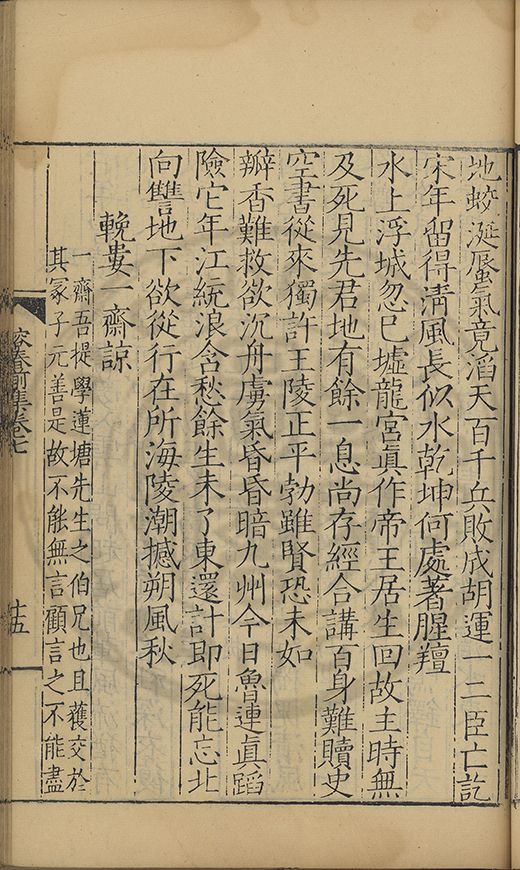 地蛟涎蜃氣竟滔天百千兵敗成胡運一二臣亡訖
宋年留得淸風長似水乾坤何處著腥羶
水上浮城忽已墟龍宮眞作帝王居生回故主時無
及死見先君地有餘一息尚存經合講百身難贖史
空書從來獨許王陵正平勃雖賢恐未如
瓣香難救欲沉舟虜氣昏昏暗九州今日魯連眞蹈
險它年江統浪含愁餘生未了東還計即死能忘北
向讐地下欲從行在所海陵潮撼朔風秋
輓婁一齋諒
一齋吾提學蓮塘先生之伯兄也且獲交於
其冢子元善是故不能無言顧言之不能盡
容春前集卷七
十五